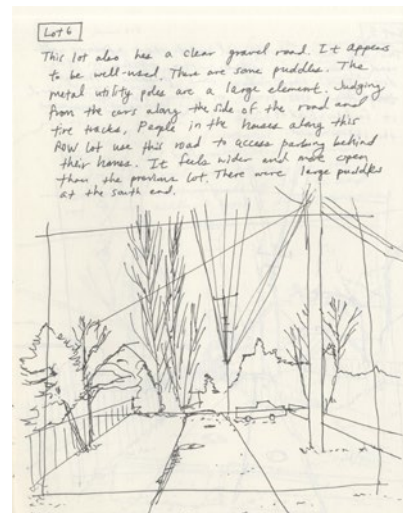 Lot 6
This lot also has a clear gravel road. It appears
to be well-used. There are some puddles. The
metal utility poles are a large element. Judging
from the cars along the side of the road and
tire tracks, People in the houses along this
ROW lot use this road to access parking behind
their homes. It feels wider and more open
than the previous lot. There were large puddles
at the south end.